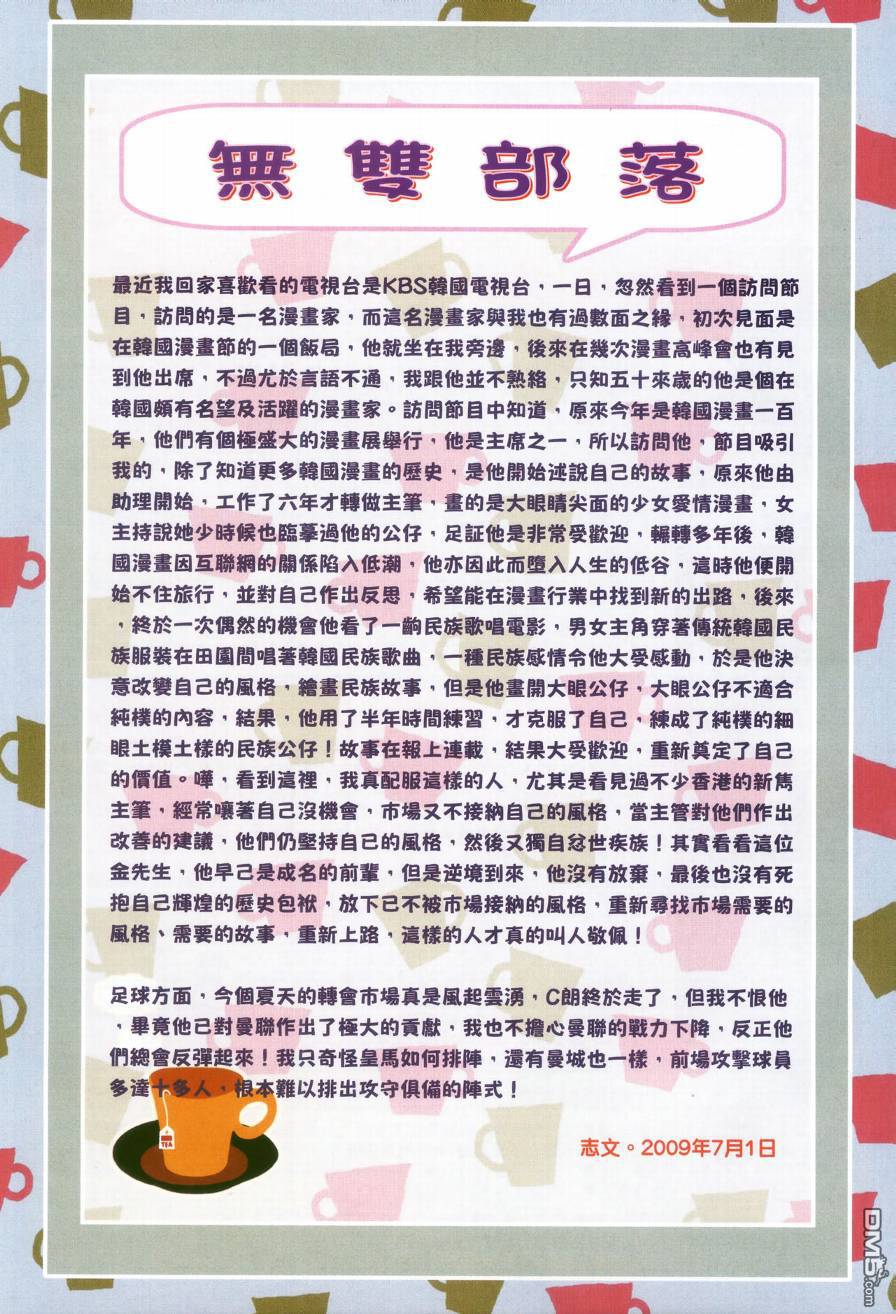 無雙部落
最近我回家喜歡看的電視台是KBS韓國電視台，一日，忽然看到一個訪問節
目，訪問的是一名漫畫家，而這名漫畫家與我也有過數面之緣，初次見面是
在韓國漫畫節的一個飯局，他就坐在我旁邊，後來在幾次漫畫高峰會也有見
到他出席，不過尤於言語不通，我跟他並不熟絡，只知五十來歲的他是個在
韓國頗有名望及活躍的漫畫家。訪問節目中知道，原來今年是韓國漫畫一百
年，他們有個極盛大的漫畫展舉行，他是主席之一，所以訪問他，節目吸引
我的，除了知道更多韓國漫畫的歷史，是他開始述說自己的故事，原來他由
助理開始，工作了六年才轉做主筆，畫的是大眼睛尖面的少女愛情漫畫，女
主持說她少時候也臨摹過他的公仔，足証他是非常受歡迎，輾轉多年後，韓
國漫畫因互聯網的關係陷入低潮，他亦因此而墮入人生的低谷，這時他便開
始不住旅行，並對自己作出反思，希望能在漫畫行業中找到新的出路，後來
，終於一次偶然的機會他看了一齣民族歌唱電影，男女主角穿著傳統韓國民
族服裝在田園間唱著韓國民族歌曲，一種民族感情令他大受感動，於是他決
意改變自己的風格，繪畫民族故事，但是他畫開大眼公仔，大眼公仔不適合
純樸的內容，結果，他用了半年時間練習，才克服了自己，練成了純樸的細
眼土模土樣的民族公仔！故事在報上連載，結果大受歡迎，重新奠定了自己
的價值。嘩，看到這裡，我真配服這樣的人，尤其是看見過不少香港的新雋
主筆，經常嚷著自己沒機會，市場又不接納自己的風格，當主管對他們作出
改善的建議，他們仍堅持自已的風格，然後又獨自忿世疾族！其實看看這位
金先生，他早己是成名的前輩，但是逆境到來，他沒有放棄，最後也沒有死
抱自己輝煌的歷史包袱，放下己不被市場接納的風格，重新尋找市場需要的
風格、需要的故事，重新上路，這樣的人才真的叫人敬佩！
足球方面，今個夏天的轉會市場真是風起雲湧，C朗終於走了，但我不恨他
，畢竟他己對曼聯作出了極大的貢獻，我也不擔心曼聯的戰力下降，反正他
們總會反彈起來！我只奇怪皇馬如何排陣，還有曼城也一樣，前場攻擊球員
多達十多人，根本難以排出攻守俱備的陣式！
TEA
志文。2009年7月1日
DM5.com